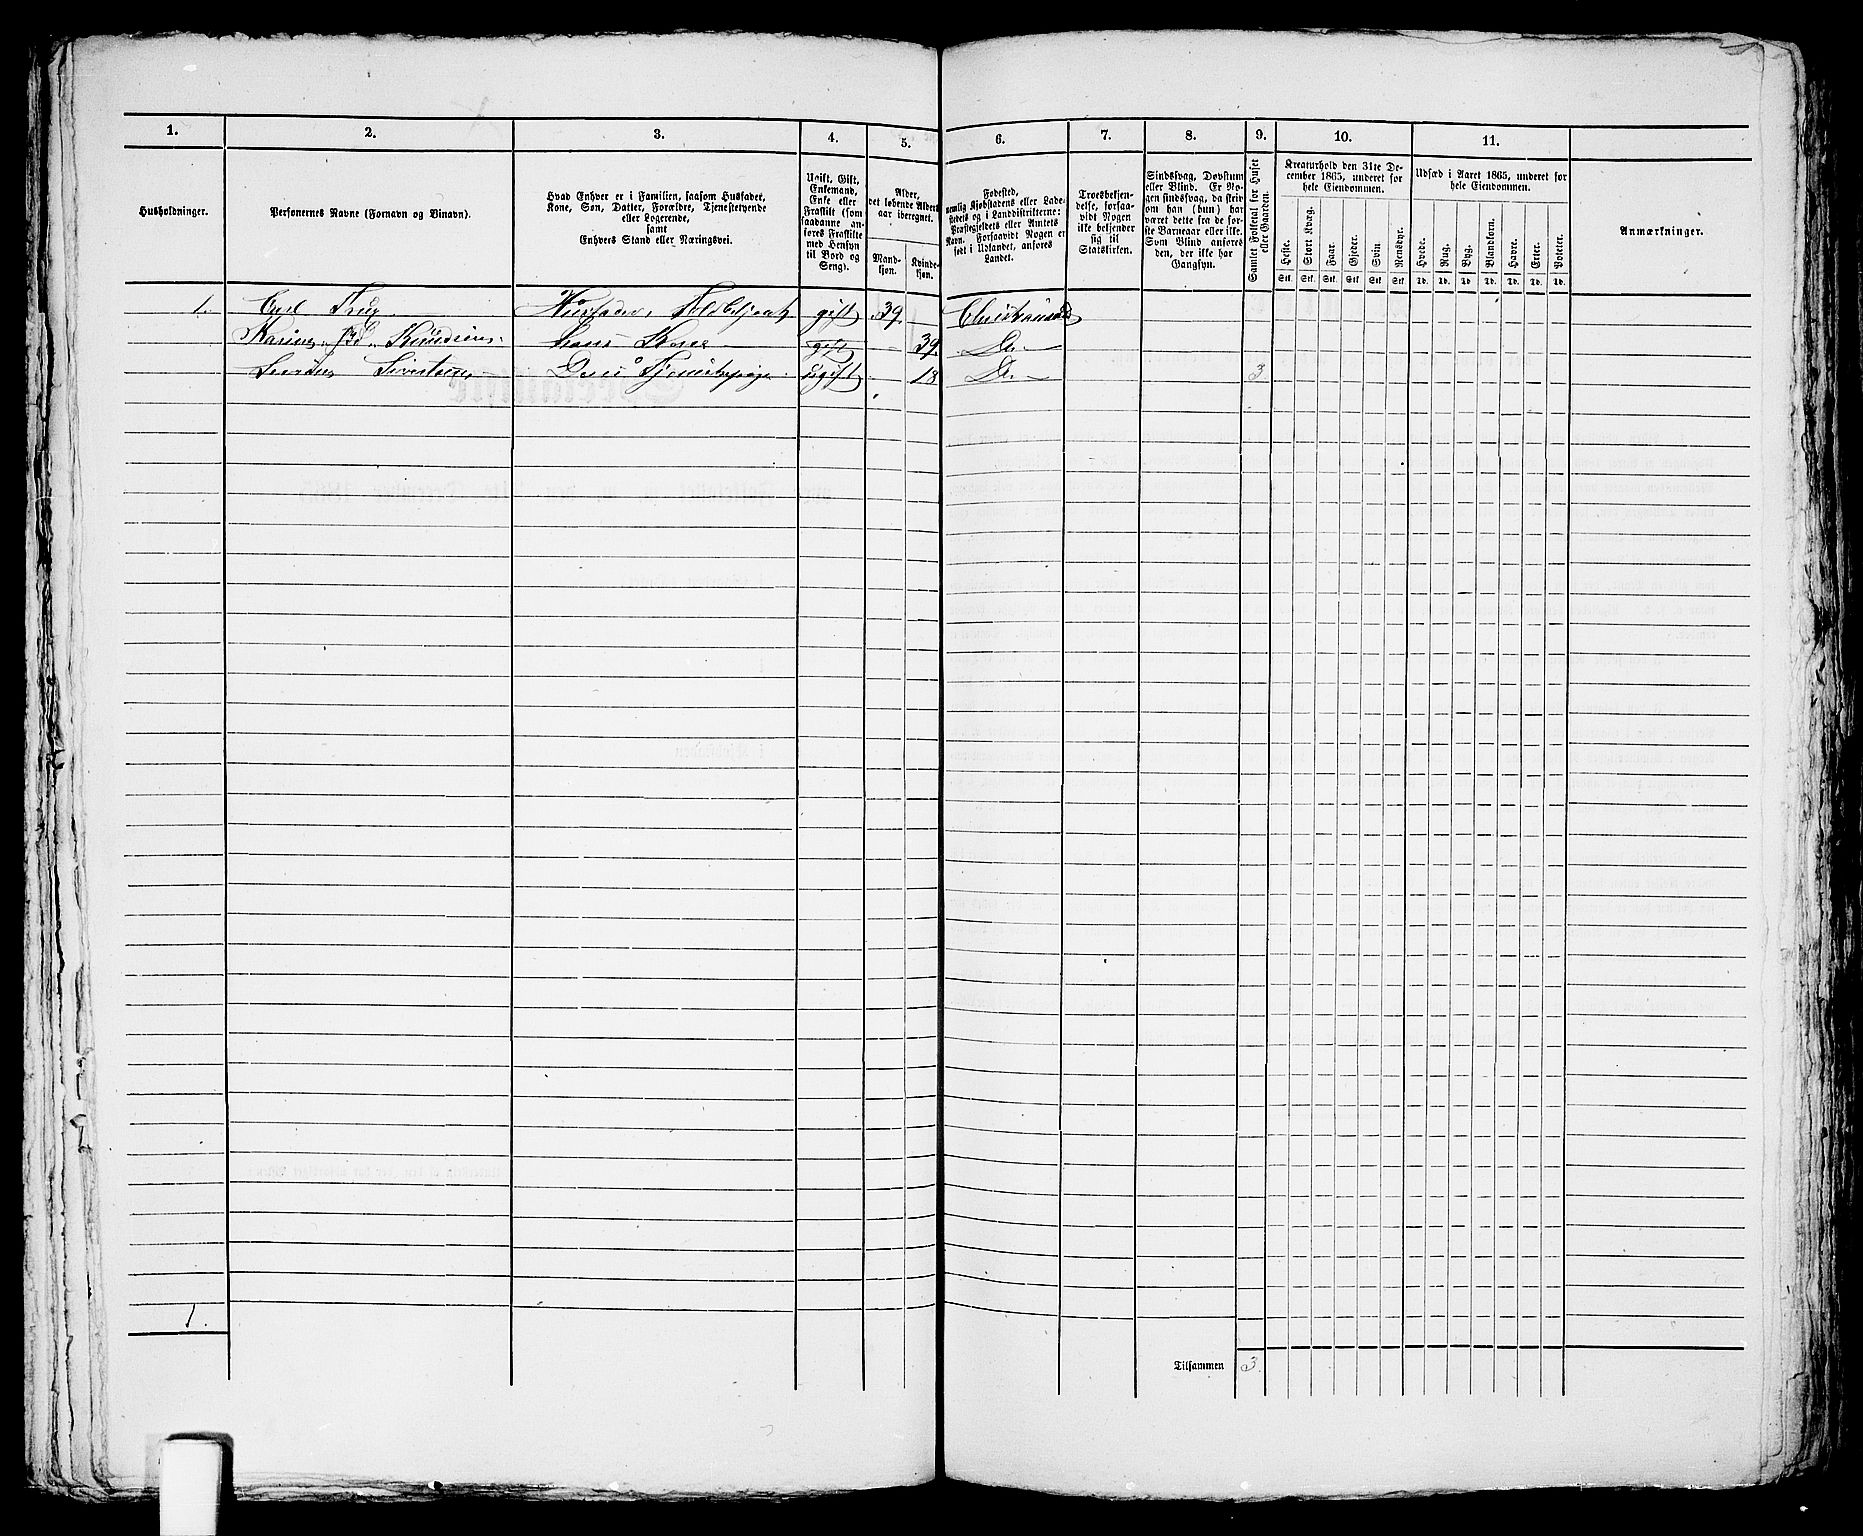 1. 2. 3. 4. 5. 6. 7. 8. 9. 10. 11.
Husholdninger.
Personernes Navne (Fornavn og Binavn).
Hvad Enhver er i Familien, saasom Husfader,
Kone, Søn, Datter, Forældre, Tjenestetyende
eller Logerende,
samt
Enhvers Stand eller Næringsvei.
Ugift, Gift,
Enkemand,
Enke eller
Fraskilt (som
saadanne an-
føres Fraskilte
med Hensyn
til Bord og
Seng).
Alder,
det løbende Alders-
aar iberegnet.
Mand-
kjøn.
Kvinde-
kjøn.
Fødested,
nemlig Kjøbstadens eller Lade-
stedets og i Landdistrikterne:
Præstegjeldets eller Amtets
Navn. Forsaavidt Nogen er
født i Udlandet, anføres
Landet.
Troesbekjen-
delse, forsaa-
vidt Nogen
ikke bekjender
sig til
Statskirken.
Sindssvag, Døvstum
eller Blind. Er No-
gen sindssvag, da skriv
om han (hun) har
været dette fra de før-
ste Barneaar eller ikke.
Som Blind anføres
den, der ikke har
Gangsyn.
Samlet Folketal for Huset
eller Gaarden.
Kreaturhold den 31te De-
cember 1865, underet for
hele Eiendommen.
Heste. Stort Kvæg. Faar. Gjeder. Svin. Rensdyr.
Stk. Stk. Stk. Stk. Stk. Stk.
Udsæd i Aaret 1865, underet for
hele Eiendommen.
Hvede. Rug. Byg. Blandkorn. Havre. Erter. Poteter.
Td. Td. Td. Td. Td. Td. Td.
Anmærkninger.
1. Carl gift 39. Christiansand
Kone gift 39. Do
Ugift 18 Do 3
1.
Tilsammen 3